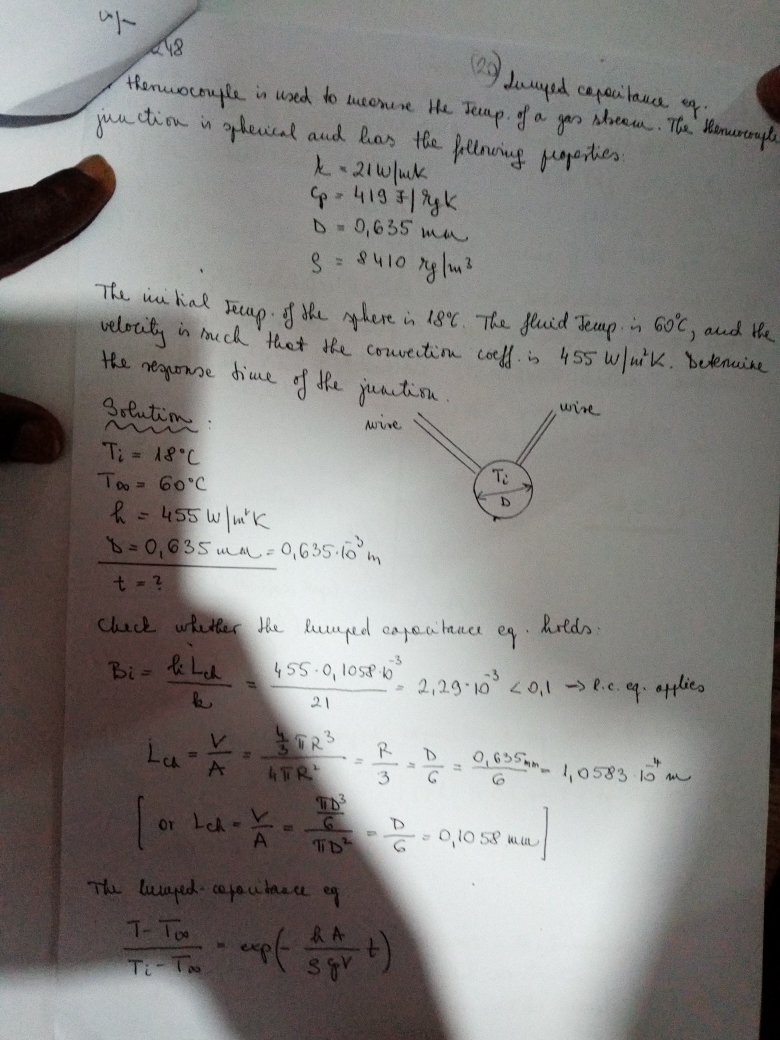 248
(20) Lumped capacitance eq.
thermocouple is used to measure the Temp. of a gas stream. The thermocouple
junction is spherical and has the following properties:
k = 21 W/mK
Cp = 419 J/kgK
D = 0,635 mm
ρ = 8410 kg/m³
The initial Temp. of the sphere is 18°C. The fluid Temp. is 60°C, and the
velocity is such that the convection coeff. is 455 W/m²K. Determine
the response time of the junction.
Solution:
wire wire
Ti = 18°C
T∞ = 60°C
Ti
D
h = 455 W/m²K
D = 0,635 mm = 0,635·10⁻³ m
t = ?
Check whether the lumped capacitance eq. holds:
Bi = h Lch / k = 455·0,1058·10⁻³ / 21 = 2,29·10⁻³ < 0,1 → l.c. eq. applies
Lch = V/A = 4/3 πR³ / 4πR² = R/3 = D/6 = 0,635mm/6 = 1,0583·10⁻⁴ m
[or Lch = V/A = πD³/6 / πD² = D/6 = 0,1058 mm]
The lumped-capacitance eq
T-T∞ / Ti-T∞ = exp(- hA / ρ cp V t)